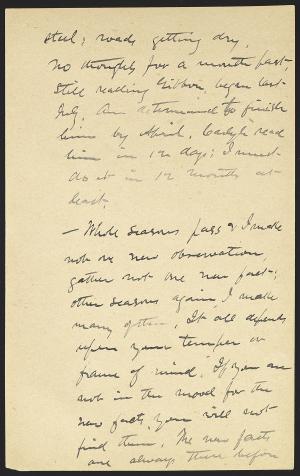 steel; roads getting dry.
No thoughts for a month past,
Still reading Gibbon, began last
July. Am determined to finish
him by April. Carlyle read
him in 12 days; I must
do it in 12 months at
least.
— Whole seasons pass & I make
not one new observation,
gather not one new fact;
other seasons again I make
many of them. It all depends
upon your temper or
frame of mind. If you are
not in the mood for the
new facts, you will not
find them. The new facts
are always there before